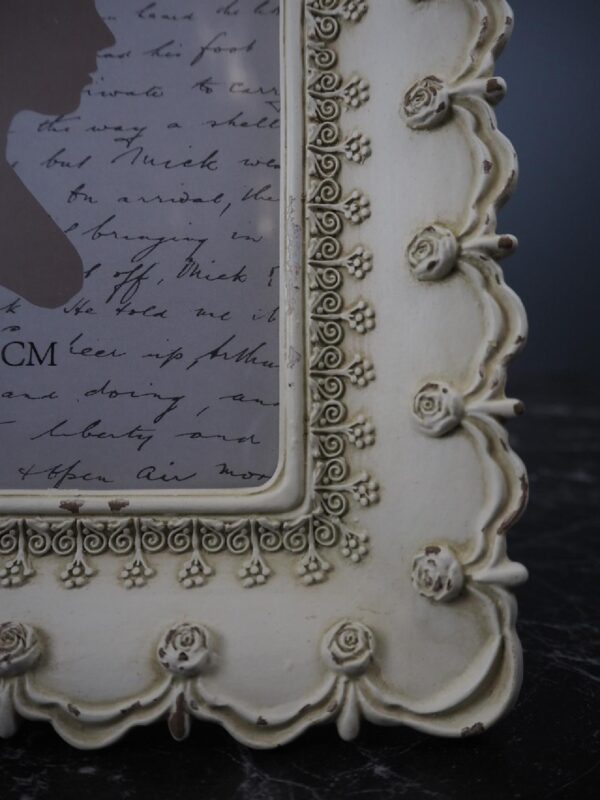 heard the
and his foot
private to carry
the way a shell
but Mick we
On arrival, the
bringing in
off, Mick
He told me it
CM
beer up, Arthu
and doing, an
liberty and
open air mor